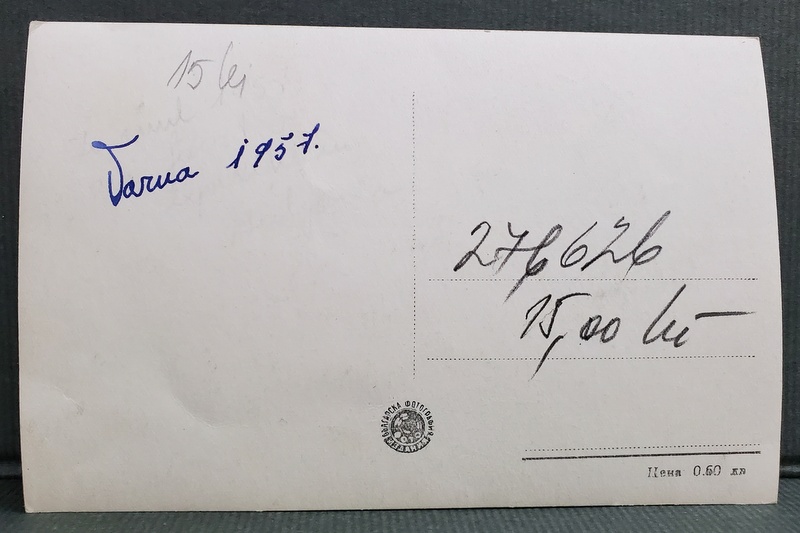 15 lei
Varna 1957.
276626
15,00 lei
БЪЛГАРСКА ФОТОГРАФИЯ
Цена 0.60 лв